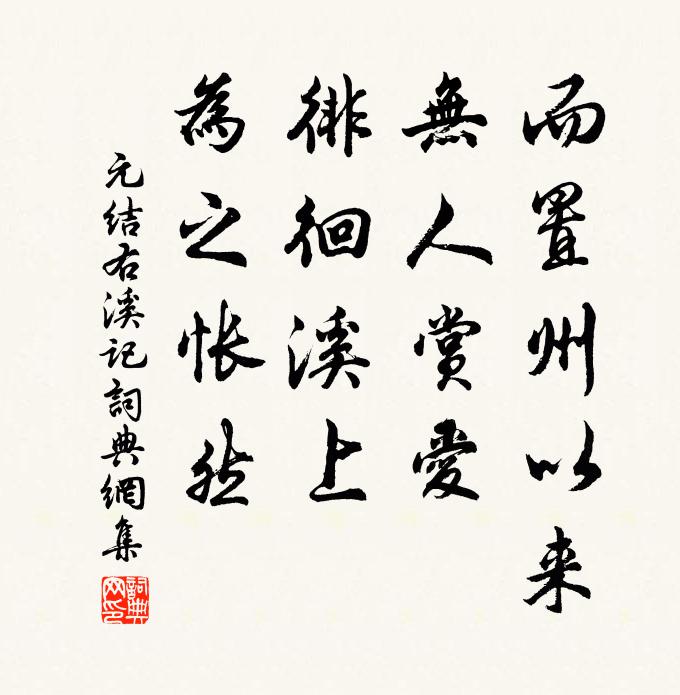 而置州以来
無人賞愛
徘徊溪上
為之悵然
元结右溪记詞典網集
詞典
网印